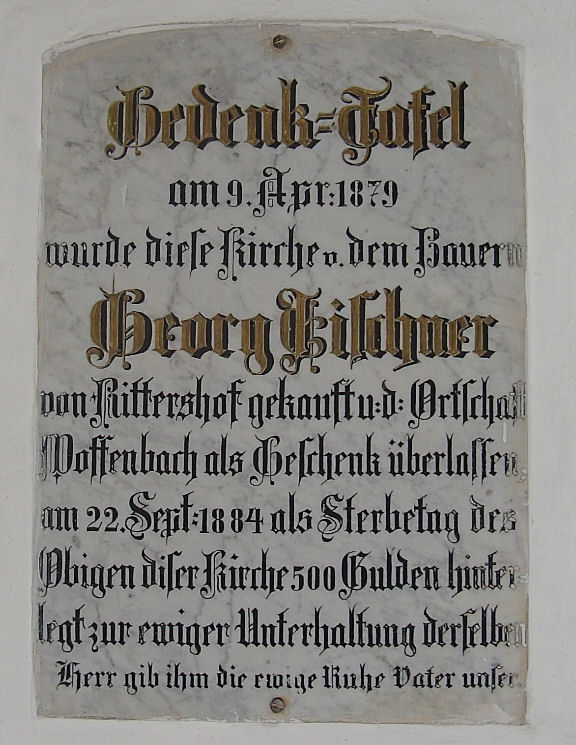 Gedenk=Tafel
am 9. Apr: 1879
wurde diese Kirche v. dem Bauern
Georg
von Rittershof gekauft u: d: Ortschaft
Woffenbach als Geschenk überlassen,
am 22. Sept: 1884 als Sterbetag des
Obigen diser Kirche 500 Gulden hinter-
legt zur ewiger Unterhaltung derselben
Herr gib ihm die ewige Ruhe Vater unser